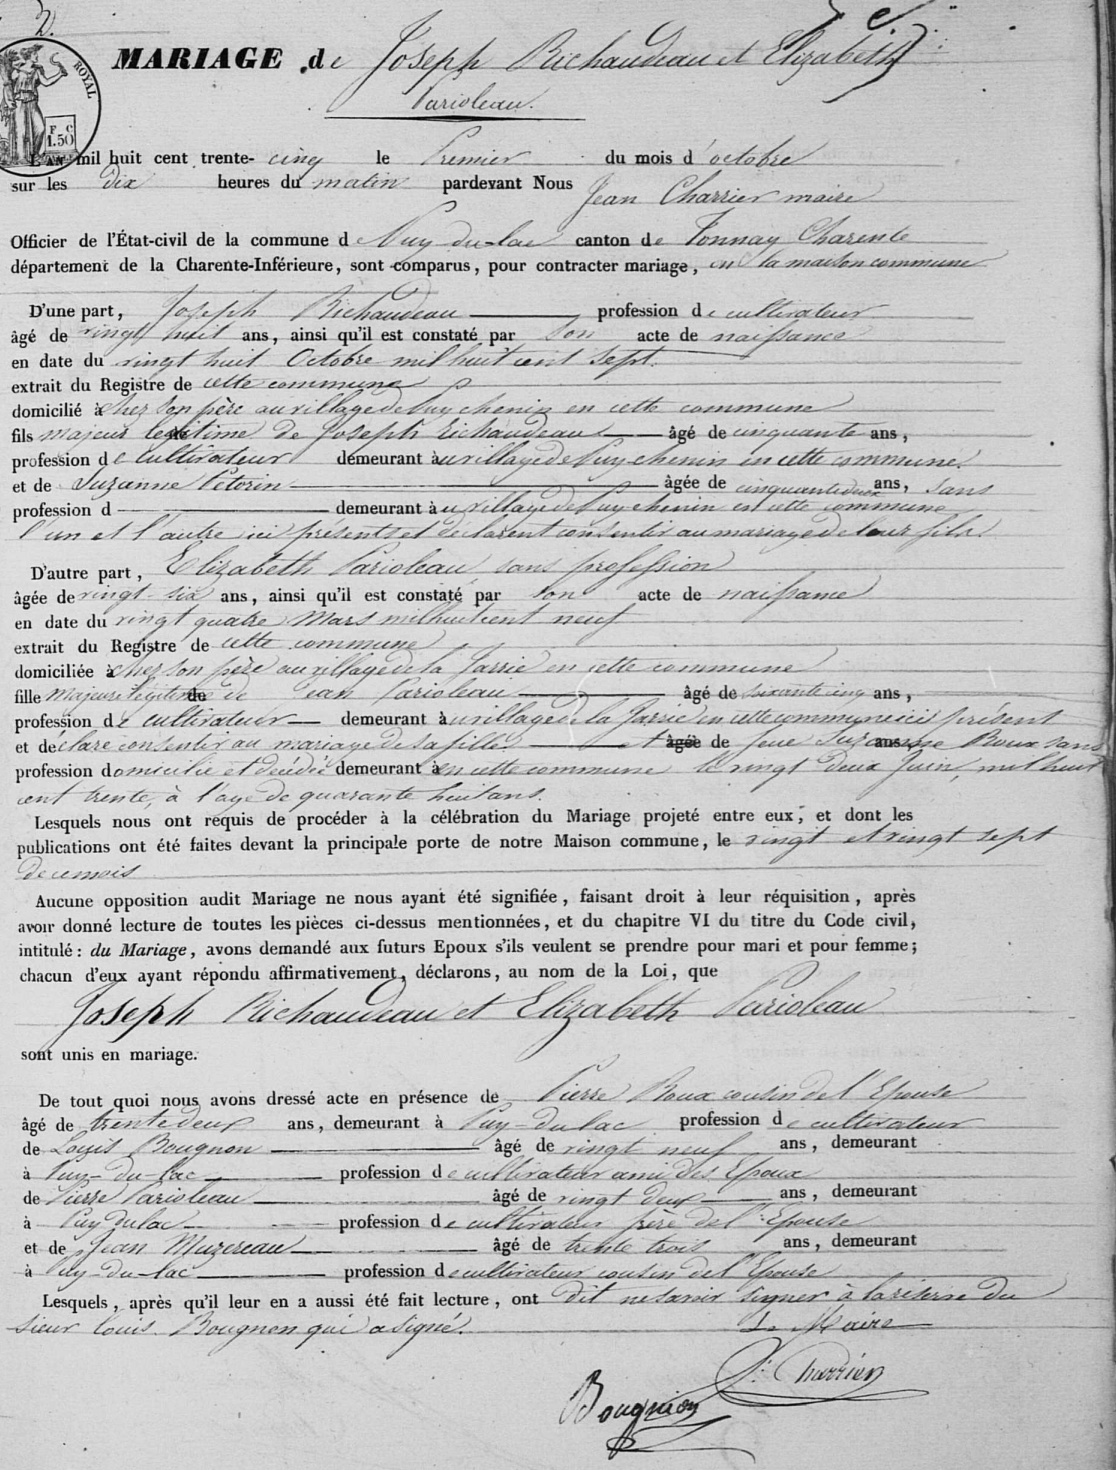 2.
ROYAL
F. C
1.50
MARIAGE de Joseph Richaudeau et Elizabeth
Parioleau.
L'AN mil huit cent trente-cinq le Premier du mois d'octobre
sur les dix heures du matin pardevant Nous Jean Charrier maire
Officier de l'État-civil de la commune de Puy-du-lac canton de Tonnay Charente
département de la Charente-Inférieure, sont comparus, pour contracter mariage, en la maison commune
D'une part, Joseph Richaudeau profession de cultivateur
âgé de vingt huit ans, ainsi qu'il est constaté par son acte de naissance
en date du vingt huit Octobre mil huit cent sept.
extrait du Registre de cette commune
domicilié à chez son père au village de Puy chenin en cette commune
fils majeur légitime de Joseph Richaudeau âgé de cinquante ans,
profession de cultivateur demeurant à au village de Puy chenin en cette commune.
et de Suzanne Petorin âgée de cinquante deux ans, sans
profession d demeurant à au village de Puy chenin en cette commune
l'un et l'autre ici présents et déclarent consentir au mariage de leur fils.
D'autre part, Elizabeth Parioleau sans profession
âgée de vingt-six ans, ainsi qu'il est constaté par son acte de naissance
en date du vingt quatre Mars mil huit cent neuf
extrait du Registre de cette commune
domiciliée à chez son père au village de la Jarrie en cette commune
fille majeure légitime de Jean Parioleau âgé de soixante cinq ans,
profession de cultivateur demeurant à au village de la Jarrie en cette commune ici présent
et déclare consentir au mariage de sa fille et âgée de feue Suzanne Roux sans
profession domiciliée et décédée demeurant à en cette commune le vingt deux Juin, mil huit
cent trente, à l'age de quarante huit ans.
Lesquels nous ont requis de procéder à la célébration du Mariage projeté entre eux, et dont les
publications ont été faites devant la principale porte de notre Maison commune, le vingt et vingt sept
de ce mois
Aucune opposition audit Mariage ne nous ayant été signifiée, faisant droit à leur réquisition, après
avoir donné lecture de toutes les pièces ci-dessus mentionnées, et du chapitre VI du titre du Code civil,
intitulé : du Mariage, avons demandé aux futurs Epoux s'ils veulent se prendre pour mari et pour femme;
chacun d'eux ayant répondu affirmativement, déclarons, au nom de la Loi, que
Joseph Richaudeau et Elizabeth Parioleau
sont unis en mariage.
De tout quoi nous avons dressé acte en présence de Pierre Roux cousin de l'Epouse
âgé de trente deux ans, demeurant à Puy-du lac profession de cultivateur
de Louis Bougnon âgé de vingt neuf ans, demeurant
à Puy-du-lac profession de cultivateur ami des Epoux
de Pierre Parioleau âgé de vingt deux ans, demeurant
à Puy du lac profession de cultivateur frère de l'Epouse
et de Jean Muzereau âgé de trente trois ans, demeurant
à Puy-du-lac profession de cultivateur cousin de l'Epouse
Lesquels, après qu'il leur en a aussi été fait lecture, ont dit ne savoir signer à la réserve du
sieur Louis Bougnon qui a signé. Le Maire
J. Charrier
Bougnion